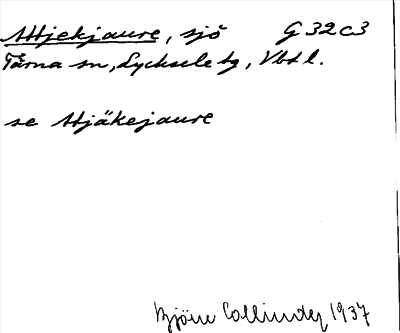 Mjekjaure, sjö G 32 c3
Tärna sn, Lycksele tg, Vbtl.
se Mjäkejaure
Björn Collinder 1937